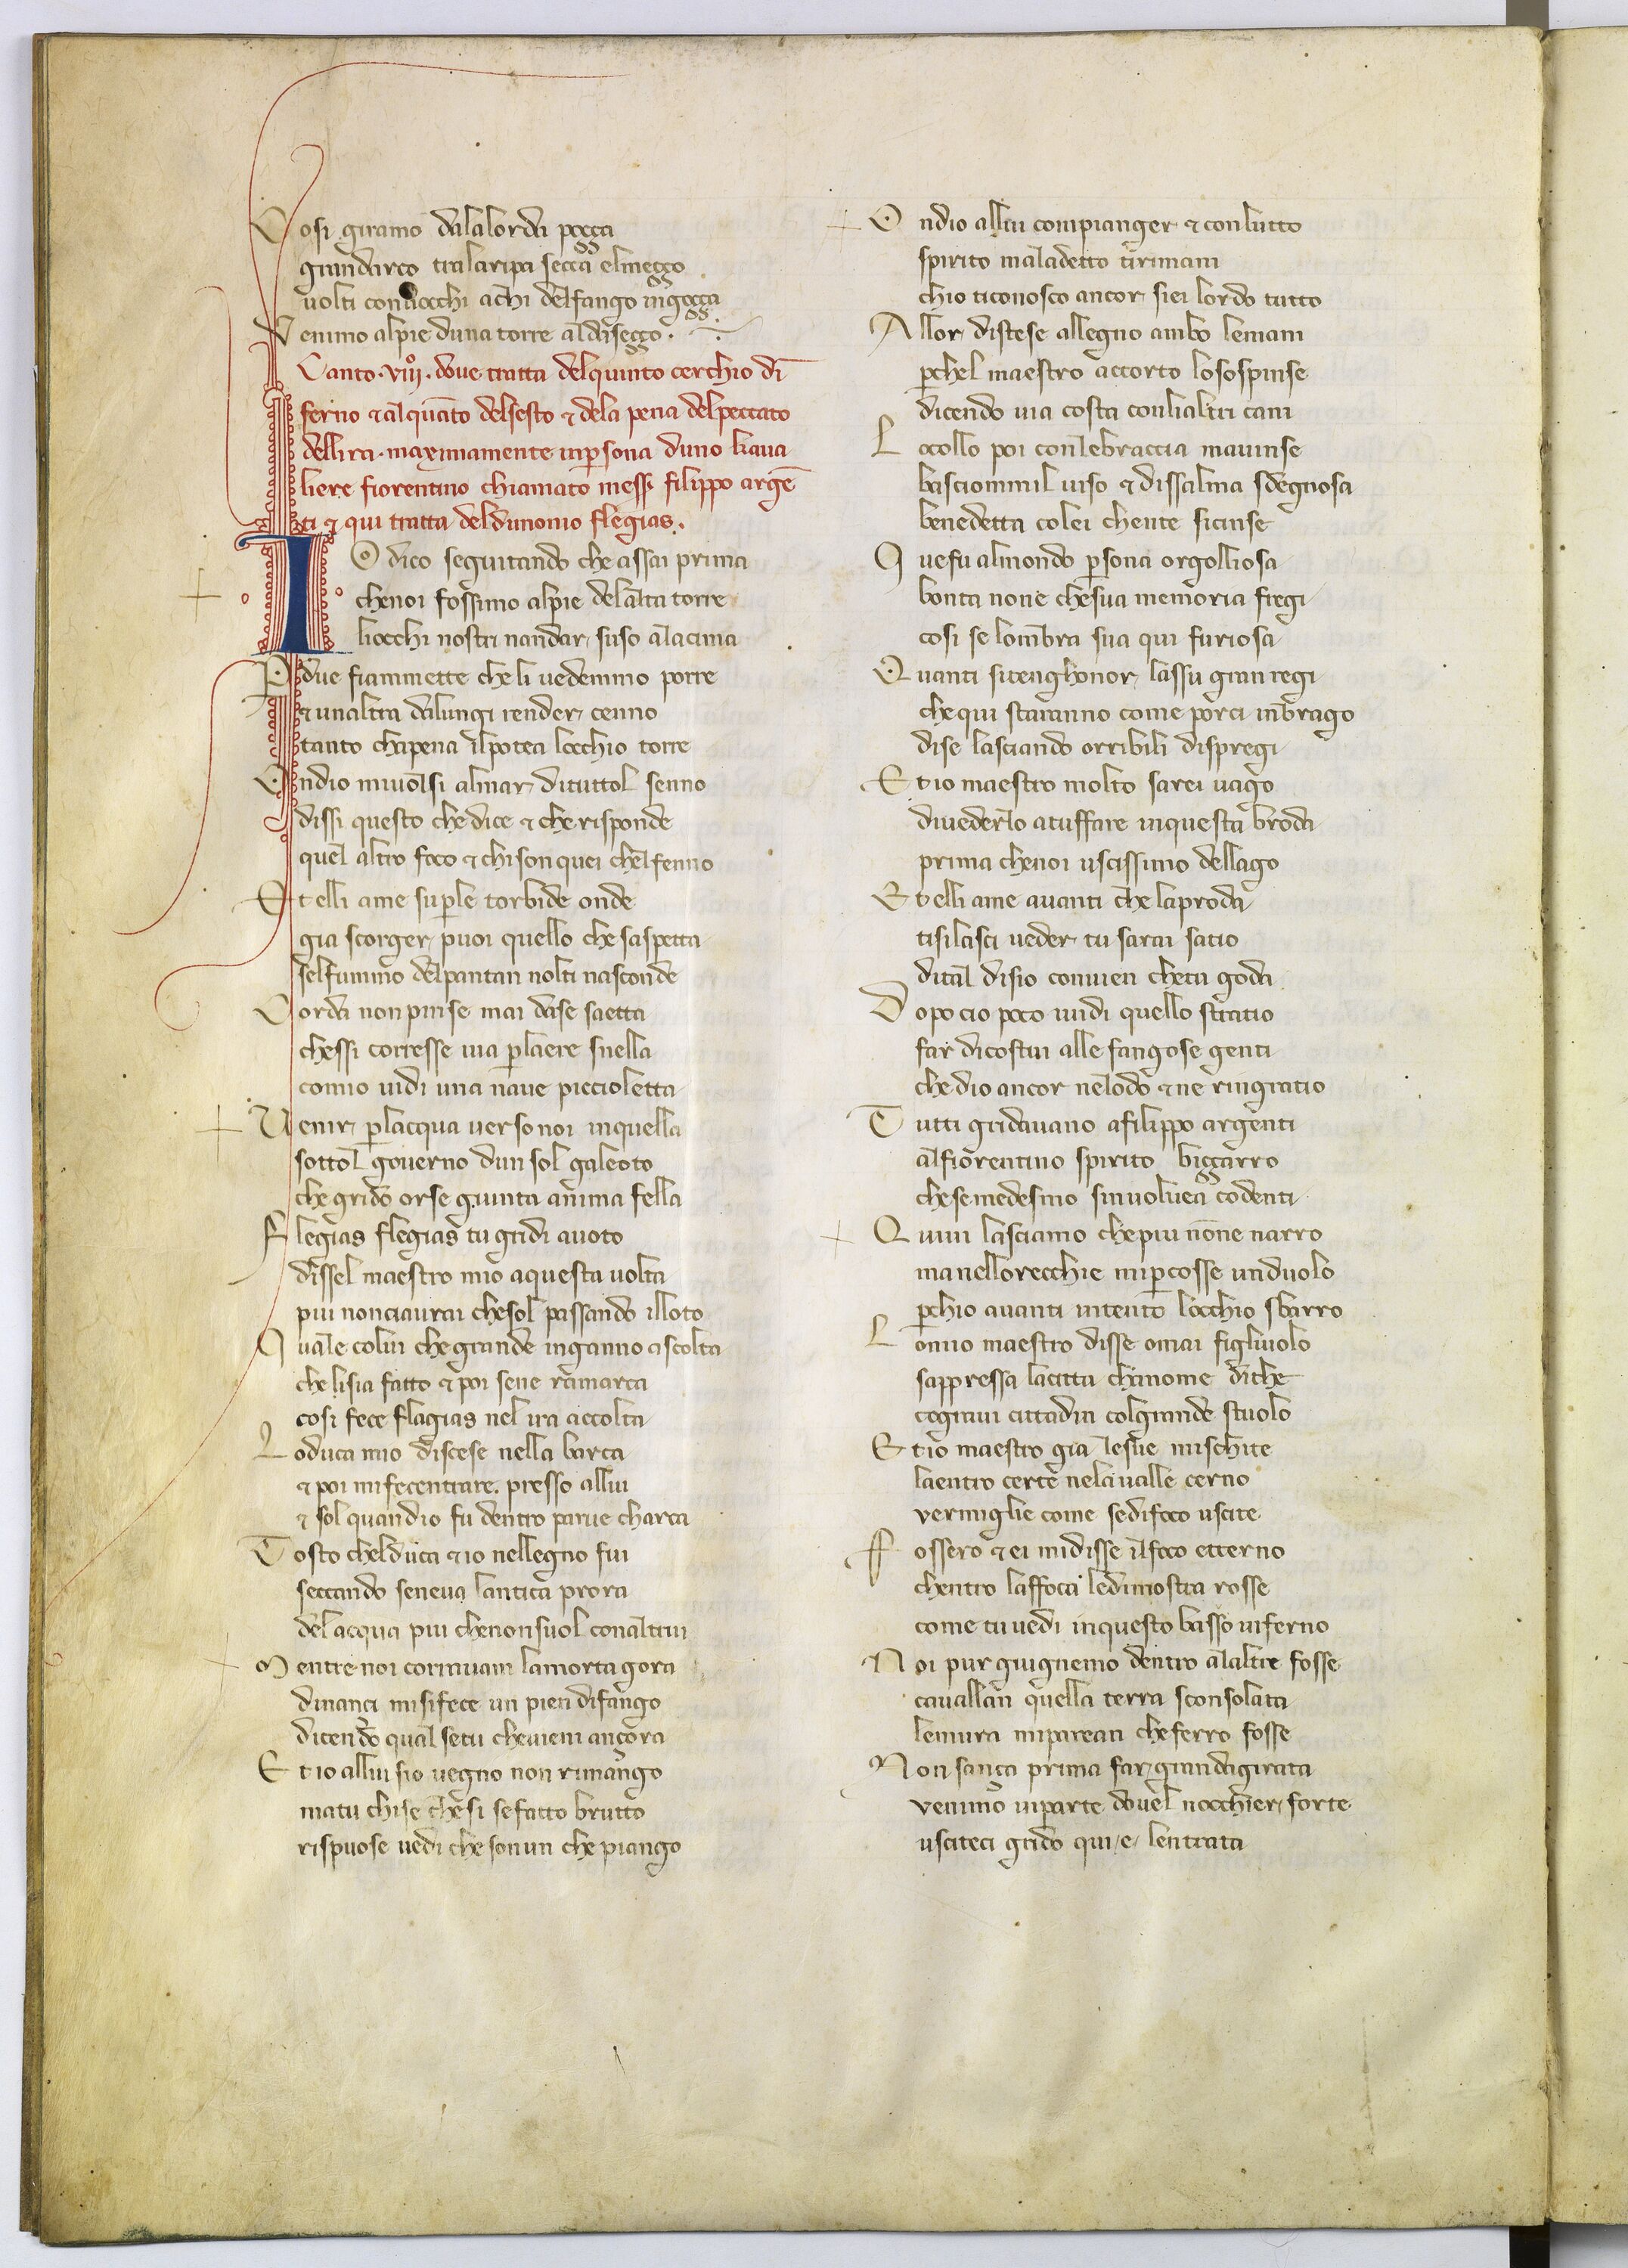 Cosi giramo dalalorda poçça
grandarco tralaripa secca elmeçço
uolti conliocchi achi delfango ingoçça
Venimo alpie duna torre aldaseçço.
Canto .viijº. doue tratta delquinto cerchio di
ferno & alquāto delsesto & dela pena delpeccato
dellira. maximamente inpersona duno kaua
liere fiorentino chiamato messẽ filippo argē
ti & qui tratta deldimonio flegias.
IO dico seguitando che assai prima
chenoi fossimo alpie delalta torre
liocchi nostri nandar suso alacima
P due fiammette che li uedemmo porre
& unaltra dalungi render cenno
tanto chapena ilpotea locchio torre
Ondio miuolsi almar dituttol senno
dissi questo che dice & che risponde
quel altro foco & chi son quei chelfenno
Et elli ame su ple torbide onde
gia scorger puoi quello che saspetta
selfummo delpantan nolti nasconde
Corda non pinse mai dase saetta
chessi corresse uia plaere snella
comio uidi una naue piccioletta
Venir placqua uerso noi inquella
sottol gouerno dun sol galeoto
che grido orse giunta anima fella
Flegias flegias tu gridi auoto
dissel maestro mio aquesta uolta
piu nonciaurai chesol passando illoto
Quale colui che grande inganno ascolta
che lisia fatto & poi sene ramarca
cosi fece flagias nel ira accolta
Loduca mio discese nella barca
& poi mifecentrare presso allui
& sol quandio fu dentro parue charca
Tosto chelduca & io nellegno fui
seccando seneua lantica prora
del acqua piu chenonsuol conaltrui
Mentre noi corrauam lamorta gora
dinançi misifece un pien difango
dicendo qual setu cheuieni ançora
Et io allui sio uegno non rimango
matu chise chesi sefatto brutto
rispuose uedi che son un che piango
Ondio allui compianger & conlutto
spirito maladetto tirimani
chio ticonosco ancor siei lordo tutto
Allor distese allegno ambo lemani
pchel maestro accorto losospinse
dicendo uia costa conlialtri cani
Locollo poi conlebraccia mauinse
basciommil uiso & dissalma sdegnosa
benedetta colei chente sicinse
Quefu almondo psona orgolliosa
bonta none chesua memoria fregi
cosi se lombra sua qui furiosa
Quanti sitenghonor lassu gran regi
che qui staranno come porci inbrago
dise lasciando orribili dispregi
Et io maestro molto sarei uago
diuederlo atuffare inquesta broda
prima chenoi uscissimo dellago
Et elli ame auanti che laproda
tisilasci ueder tu sarai satio
dital disio conuien chetu goda
Dopo cio poco uidi quello stratio
far dicostui alle fangose genti
che dio ancor nelodo & ne ringratio
Tutti gridauano afilippo argenti
alfiorentino spirito biççarro
chesemedesimo sinuoluea codenti
Quiui lasciamo chepiu none narro
manellorecchie mipcosse unduolo
pchio auanti intento locchio sbarro
Lonmo maestro disse omai figliuolo
sappressa lacitta chanome dithe
cograui cittadin colgrande stuolo
Et io maestro gia lesue mischite
laentro certe nelaualle cerno
vermiglie come sedifoco uscite
Fossero & ei midisse ilfoco etterno
chentro laffoca ledimostra rosse
come tu uedi inquesto basso inferno
Noi pur giugnemo dentro alaltre fosse
cauallan quella terra sconsolata
lemura miparean cheferro fosse
Non sança prima far grandagirata
venimo inparte douel nocchier forte
usciteci grido qui e lentrata